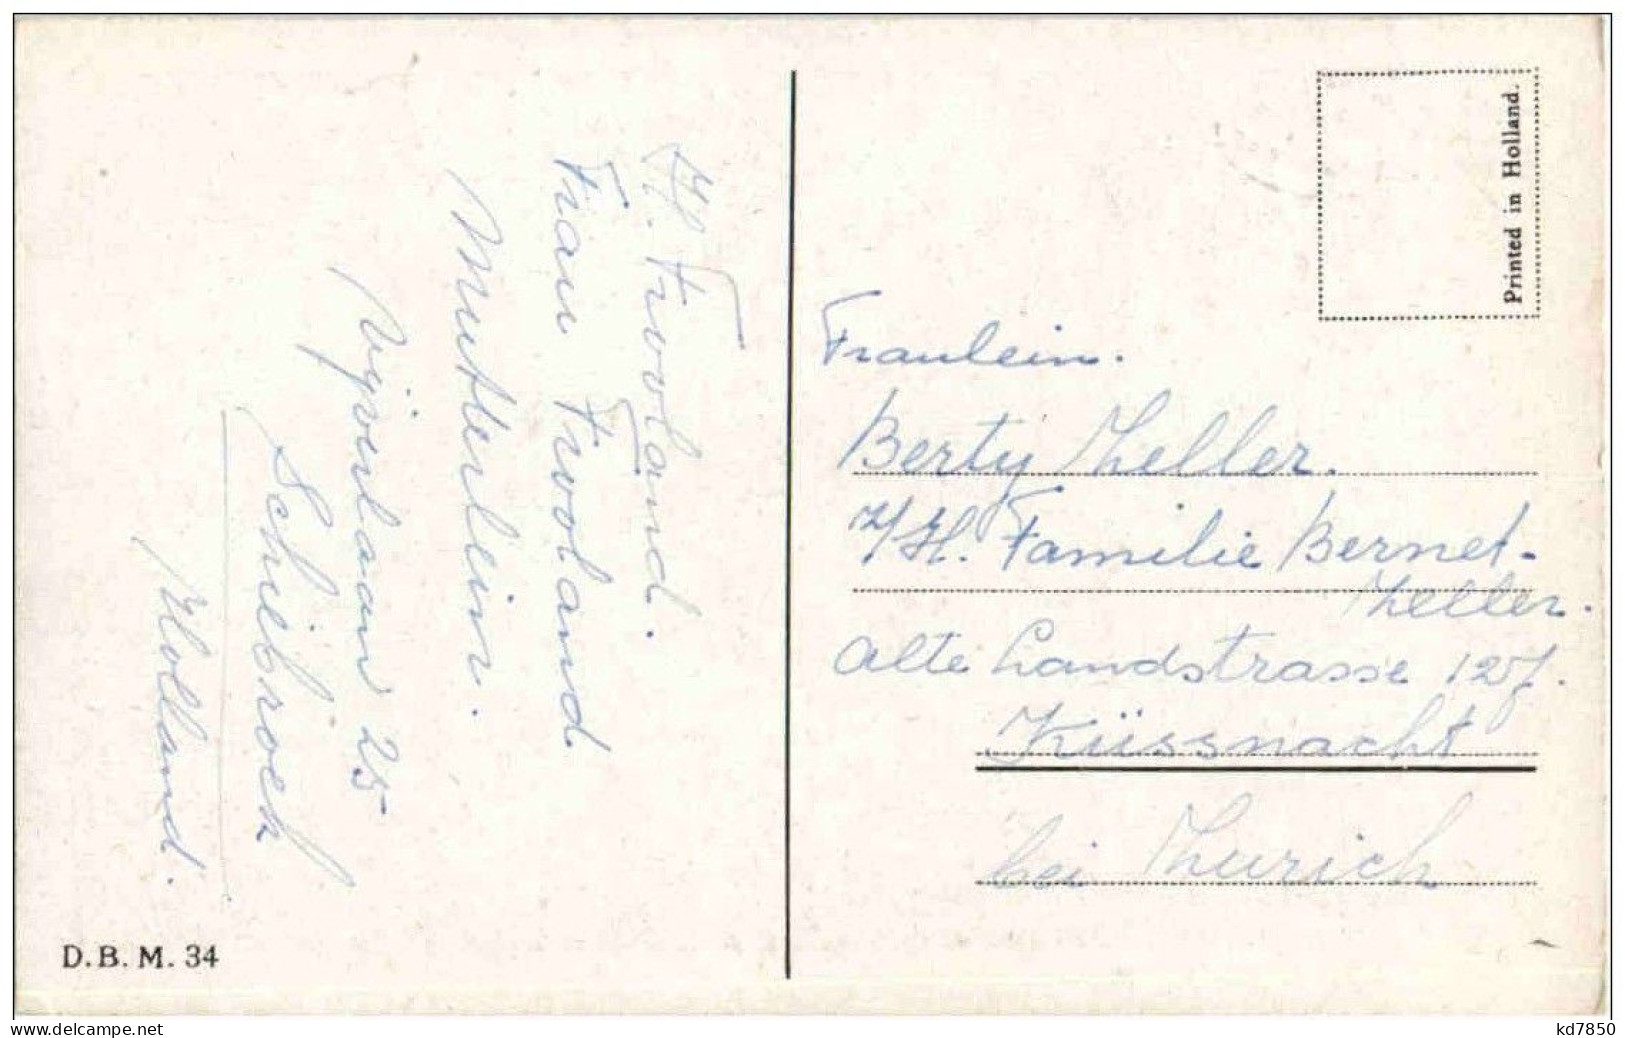 H. Frooland.
Frau Frooland
Mutterlein.
Vijverlaan 25
Schiebroek
Holland.
D.B.M. 34
Printed in Holland.
Fraulein.
Berty Zeller.
p/H. Familie Bernet-
Zeller.
Alte Landstrasse 127.
Küssnacht
bei Zurich
www.delcampe.net
kd7850